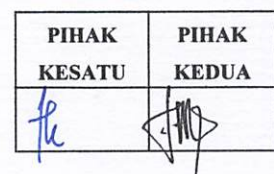 PIHAK KESATU
PIHAK KEDUA